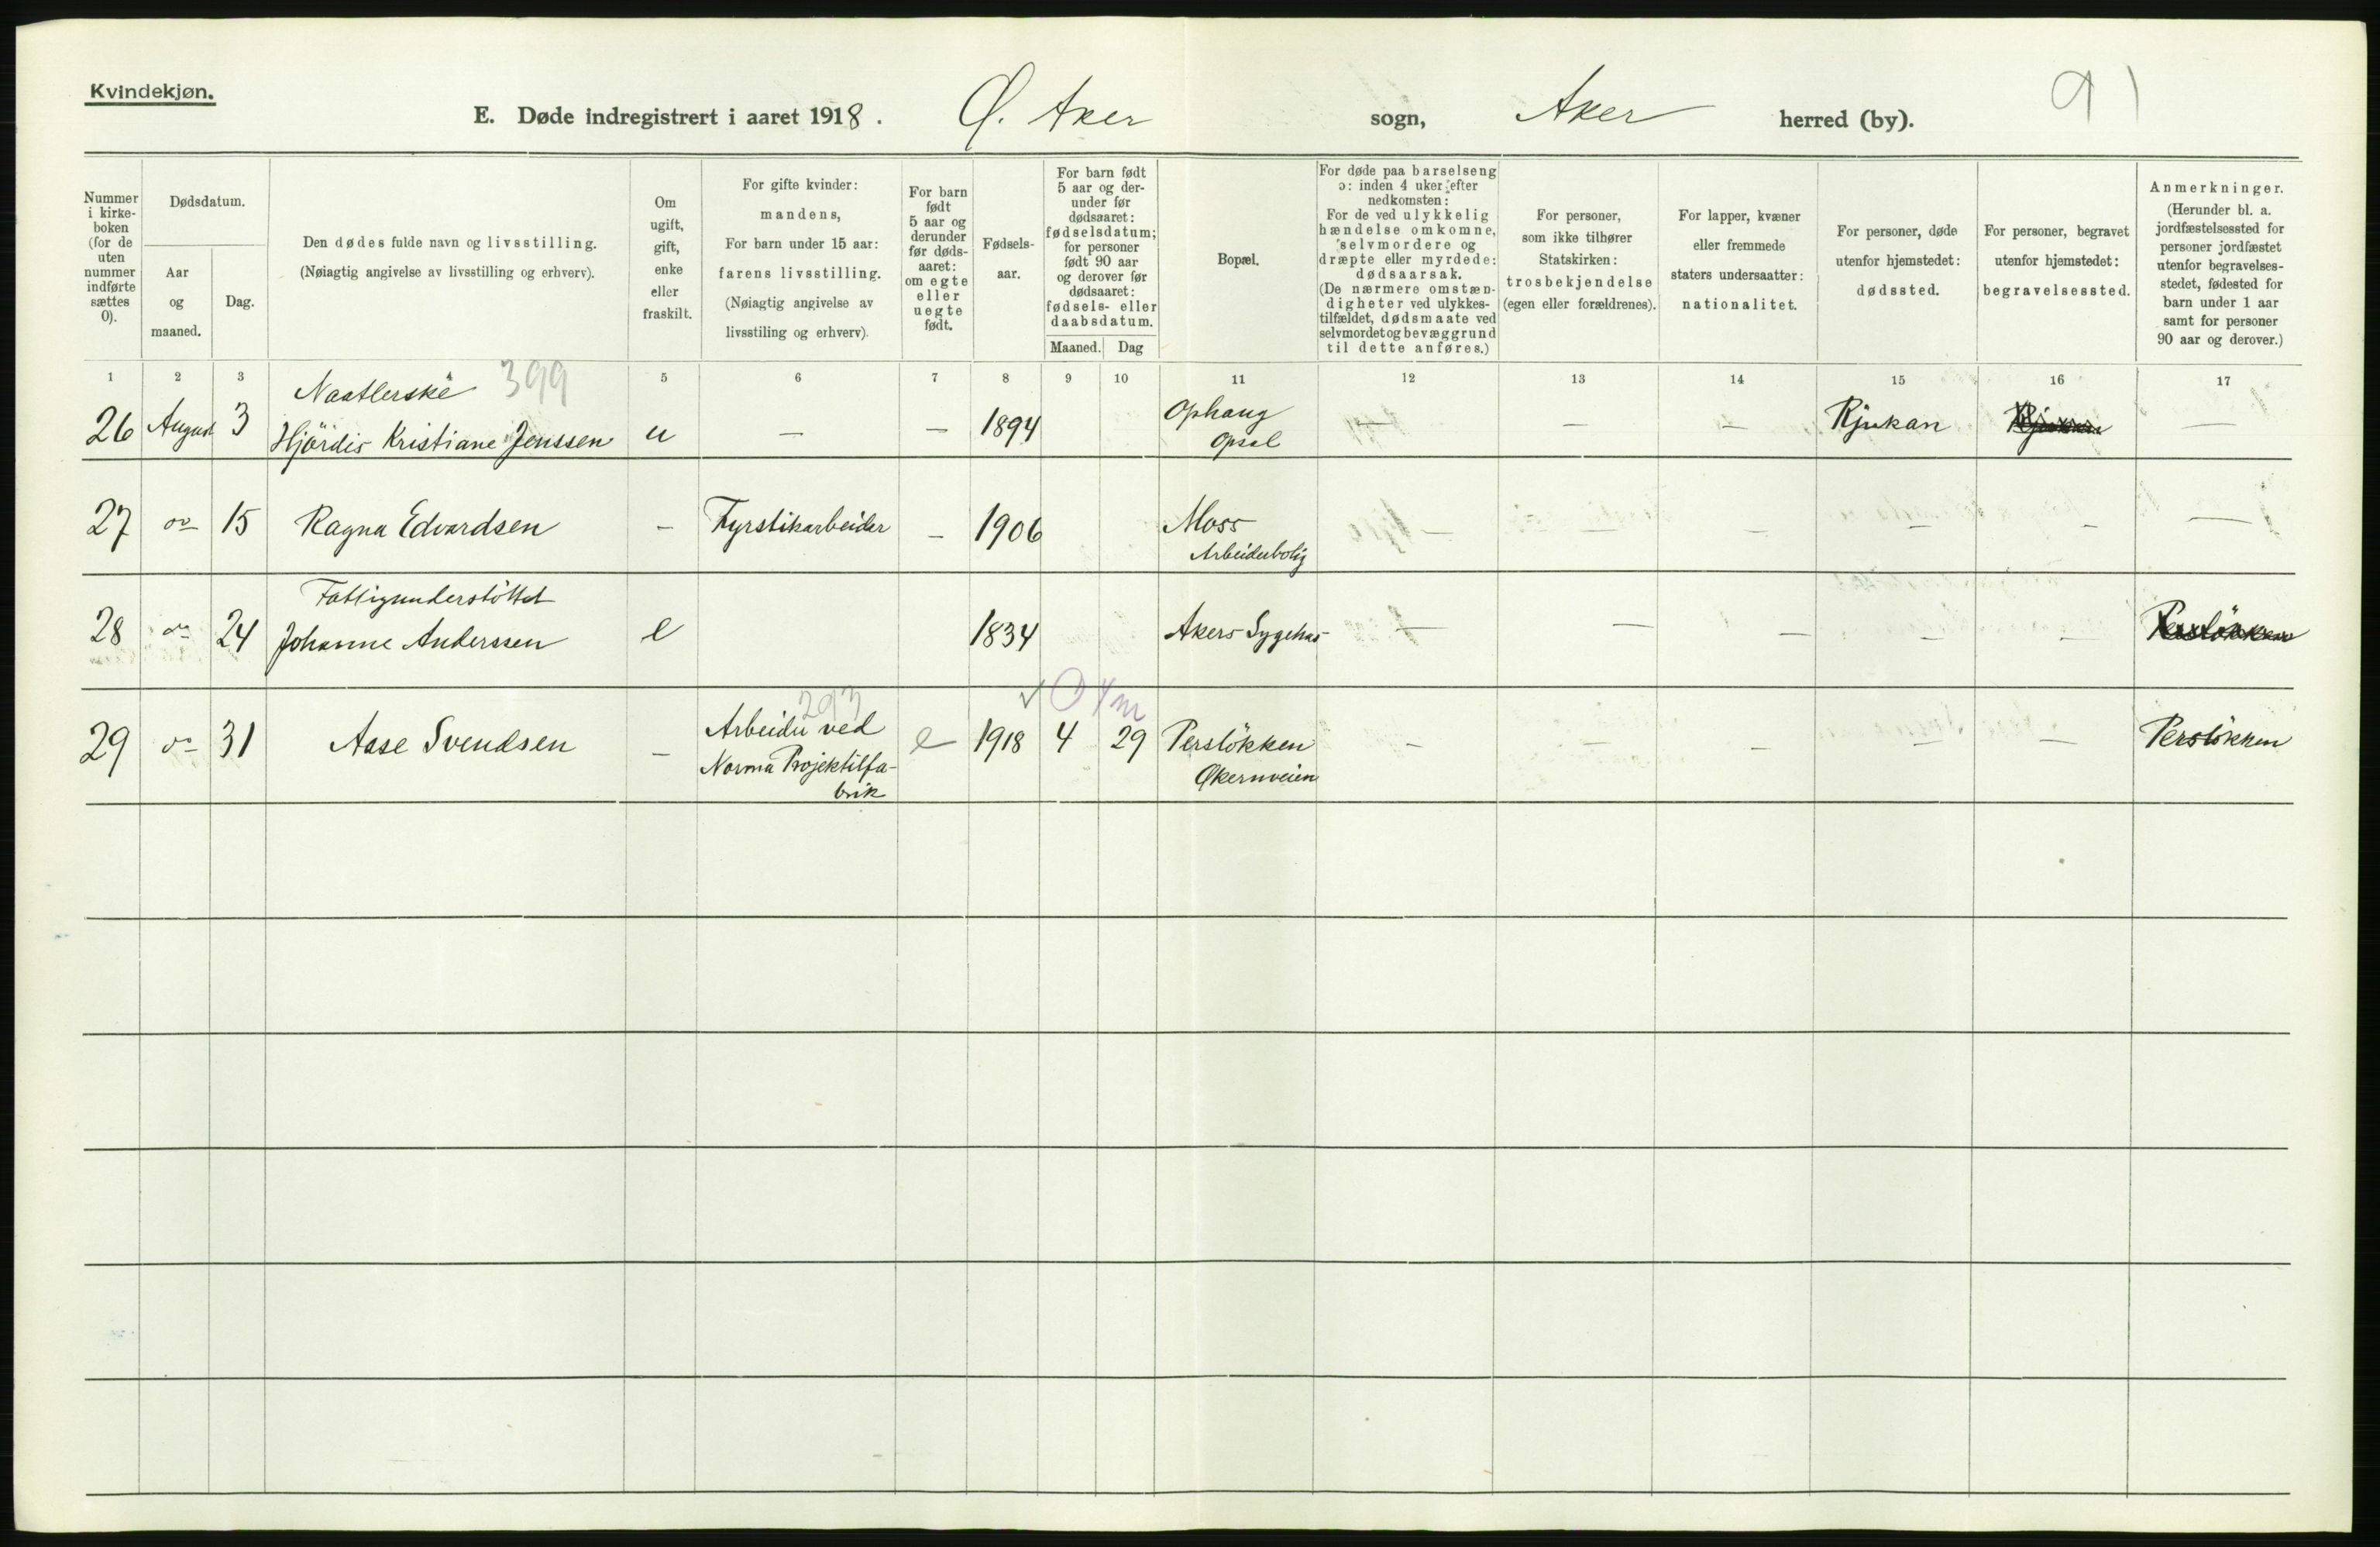 Kvindekjøn.
E. Døde indregistrert i aaret 1918. Ø. Aker sogn, Aker herred (by). 91
Nummer i kirke-boken (for de uten nummer indførte sættes 0).
Dødsdatum.
Aar og maaned.
Dag.
Den dødes fulde navn og livsstilling.
(Nøiagtig angivelse av livsstilling og erhverv).
Om ugift, gift, enke eller fraskilt.
For gifte kvinder:
mandens,
For barn under 15 aar:
farens livsstilling.
(Nøiagtig angivelse av
livsstiling og erhverv).
For barn født 5 aar og derunder før døds-aaret: om egte eller uegte født.
Fødsels-aar.
For barn født
5 aar og der-
under før
dødsaaret:
fødselsdatum;
for personer
født 90 aar
og derover før
dødsaaret:
fødsels- eller
daabsdatum.
Maaned. Dag
Bopæl.
For døde paa barselseng
ɔ: inden 4 uker efter
nedkomsten:
For de ved ulykkelig
hændelse omkomne,
selvmordere og
dræpte eller myrdede:
dødsaarsak.
(De nærmere omstæn-
digheter ved ulykkes-
tilfældet, dødsmaate ved
selvmordet og bevæggrund
til dette anføres.)
For personer,
som ikke tilhører
Statskirken:
trosbekjendelse
(egen eller forældrenes).
For lapper, kvæner
eller fremmede
staters undersaatter:
nationalitet.
For personer, døde
utenfor hjemstedet:
dødssted.
For personer, begravet
utenfor hjemstedet:
begravelsessted.
Anmerkninger.
(Herunder bl. a.
jordfæstelsessted for
personer jordfæstet
utenfor begravelses-
stedet, fødested for
barn under 1 aar
samt for personer
90 aar og derover.)
1 2 3 4 5 6 7 8 9 10 11 12 13 14 15 16 17
399
26 August 3 Hjördis Kristiane Jenssen u — — 1894 Ophaug — — — Rjukan Rjukan —
Opsal
27 do 15 Ragna Edvardsen — Fyrstikarbeider — 1906 Moss — — — — — —
Arbeiderbolig
Fattigunderstöttet
28 do 24 Johanne Anderssen e 1834 Akers Sygehus — — — — — Perslökken
293 ✓ 0 4m
29 do 31 Aase Svendsen — Arbeider ved e 1918 4 29 Perslökken — — — — — Perslökken
Norma Projektilfa- Økernveien
brik